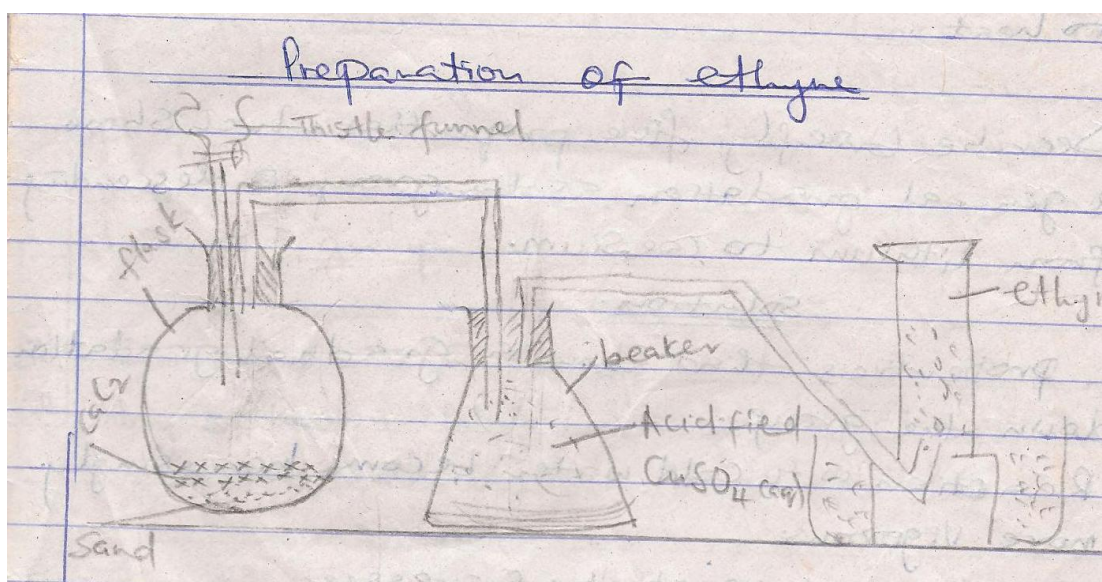 Preparation of ethyne
Thistle funnel
flask
ethy
beaker
CaC2
Acidified
CuSO4 (aq)
Sand